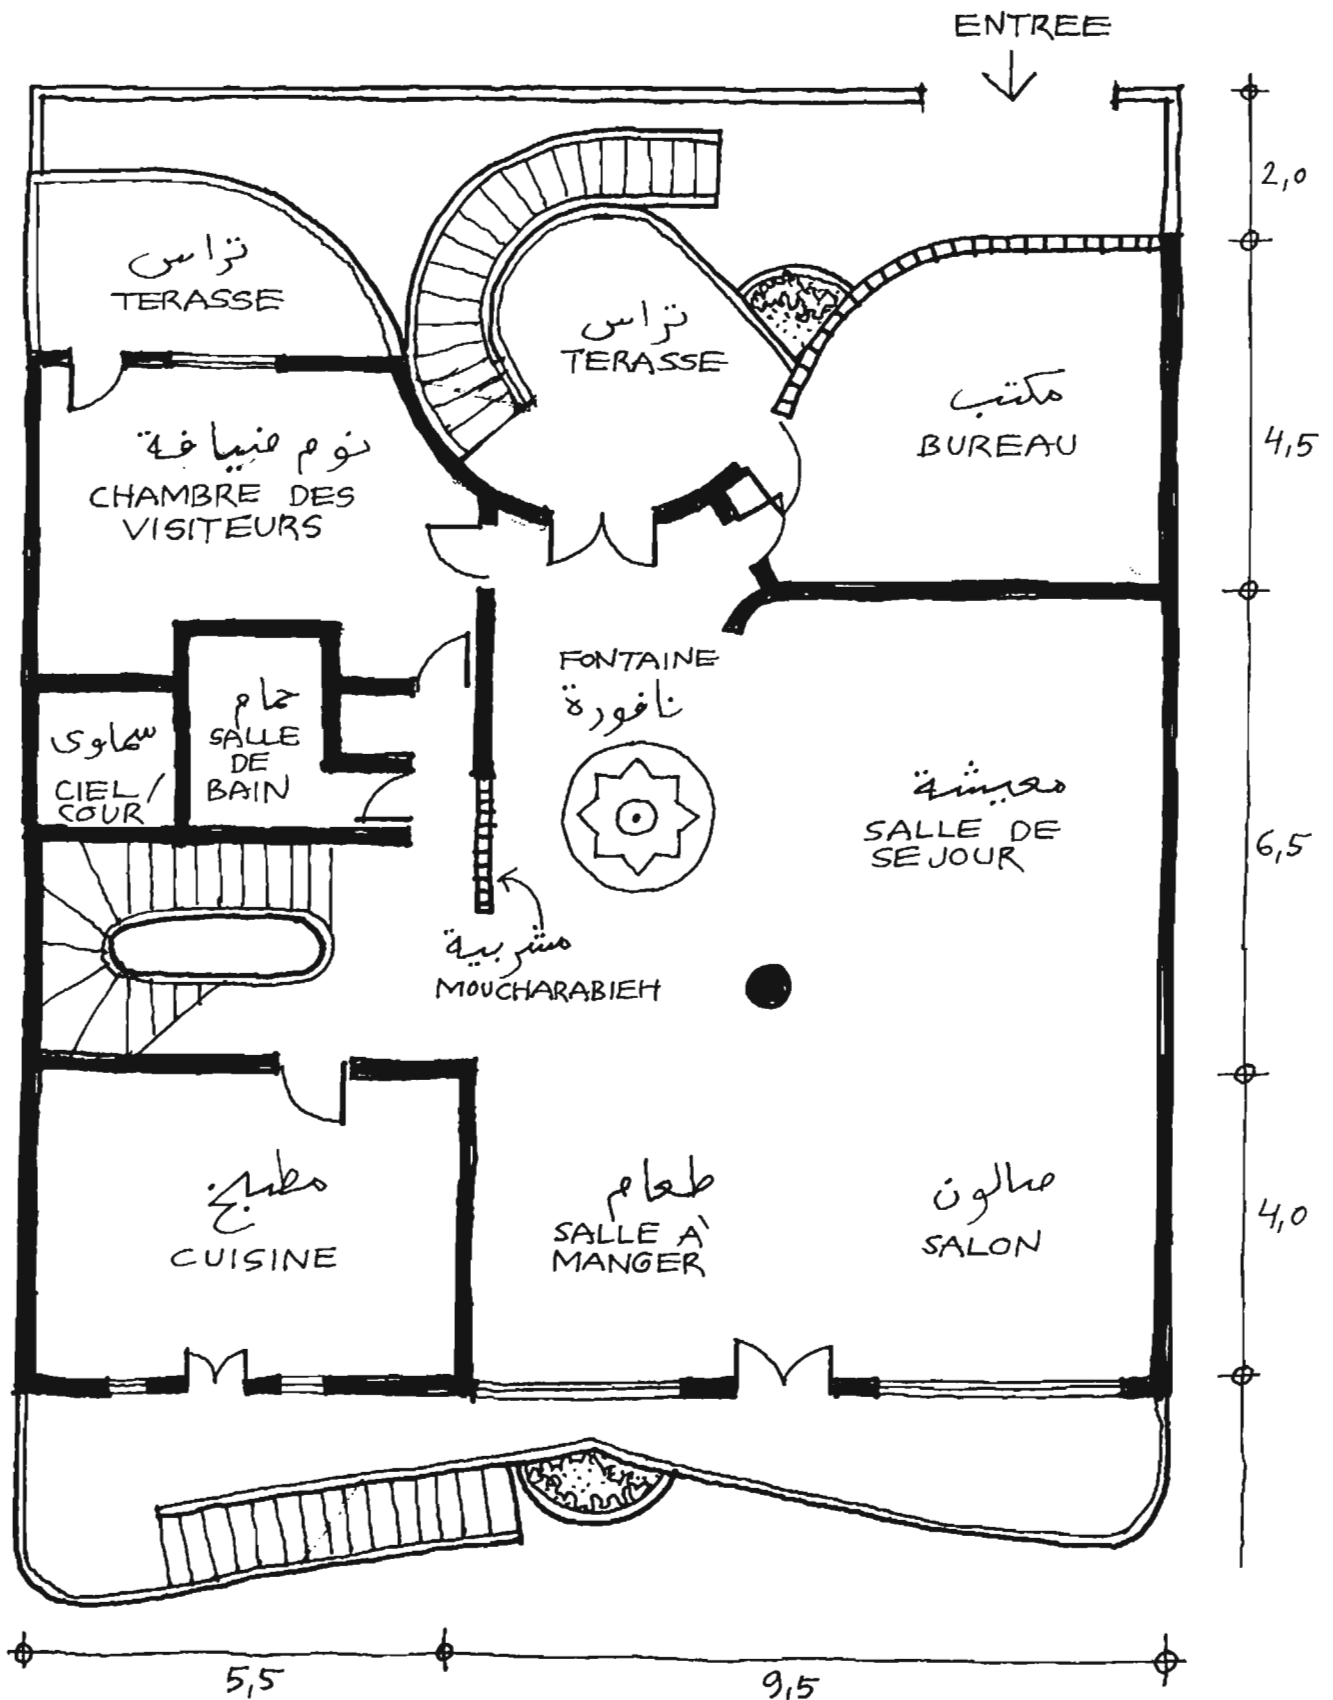 ENTREE
2,0
تراس
TERASSE
تراس
TERASSE
مكتب
BUREAU
4,5
نوم ضيافة
CHAMBRE DES
VISITEURS
FONTAINE
نافورة
حمام
SALLE
DE
BAIN
سماوى
CIEL/
COUR
معيشة
SALLE DE
SEJOUR
6,5
مشربية
MOUCHARABIEH
مطبخ
CUISINE
طعام
SALLE A`
MANGER
صالون
SALON
4,0
5,5
9,5